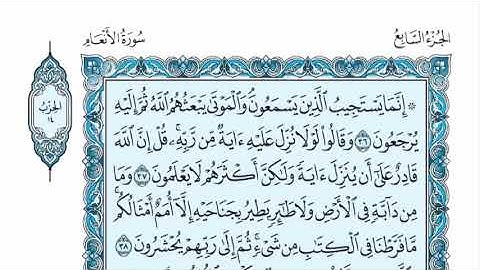 الجزء السابع
سورة الأنعام
الحزب
١٤
۞ إِنَّمَا يَسْتَجِيبُ ٱلَّذِينَ يَسْمَعُونَۘ وَٱلْمَوْتَىٰ يَبْعَثُهُمُ ٱللَّهُ ثُمَّ إِلَيْهِ
يُرْجَعُونَ ٣٦ وَقَالُوا۟ لَوْلَا نُزِّلَ عَلَيْهِ ءَايَةٌ مِّن رَّبِّهِۦۚ قُلْ إِنَّ ٱللَّهَ
قَادِرٌ عَلَىٰٓ أَن يُنَزِّلَ ءَايَةً وَلَٰكِنَّ أَكْثَرَهُمْ لَا يَعْلَمُونَ ٣٧ وَمَا
مِن دَآبَّةٍ فِى ٱلْأَرْضِ وَلَا طَٰٓئِرٍ يَطِيرُ بِجَنَاحَيْهِ إِلَّآ أُمَمٌ أَمْثَالُكُمۚ
مَّا فَرَّطْنَا فِى ٱلْكِتَٰبِ مِن شَىْءٍۚ ثُمَّ إِلَىٰ رَبِّهِمْ يُحْشَرُونَ ٣٨